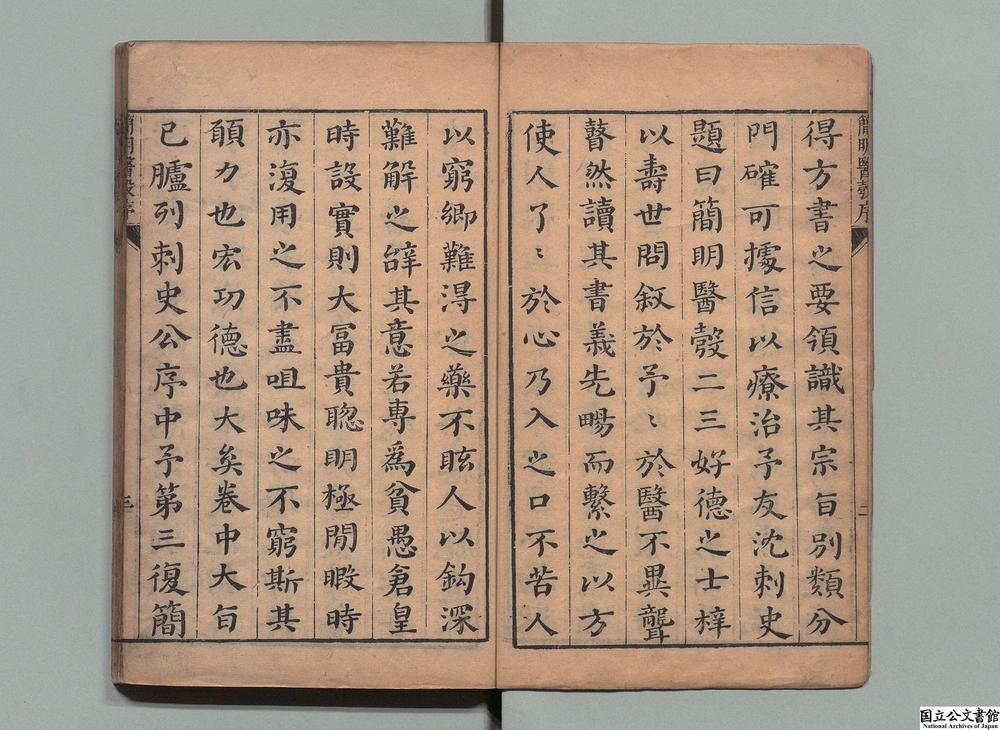 簡明醫彀序
得方書之要領識其宗旨別類分
門確可據信以療治予友沈刺史
題曰簡明醫彀二三好德之士梓
以壽世問敘於予〻於醫不異聾
瞽然讀其書義先暢而繫之以方
使人了〻於心乃入之口不苦人
二
以窮鄉難淂之藥不眩人以鈎深
難解之辭其意若專爲貧愚倉皇
時設實則大冨貴聦明極閒暇時
亦復用之不盡咀味之不窮斯其
願力也宏功德也大矣卷中大旨
已臚列刺史公序中予第三復簡
簡明醫彀序
三
国立公文書館
National Archives of Japan